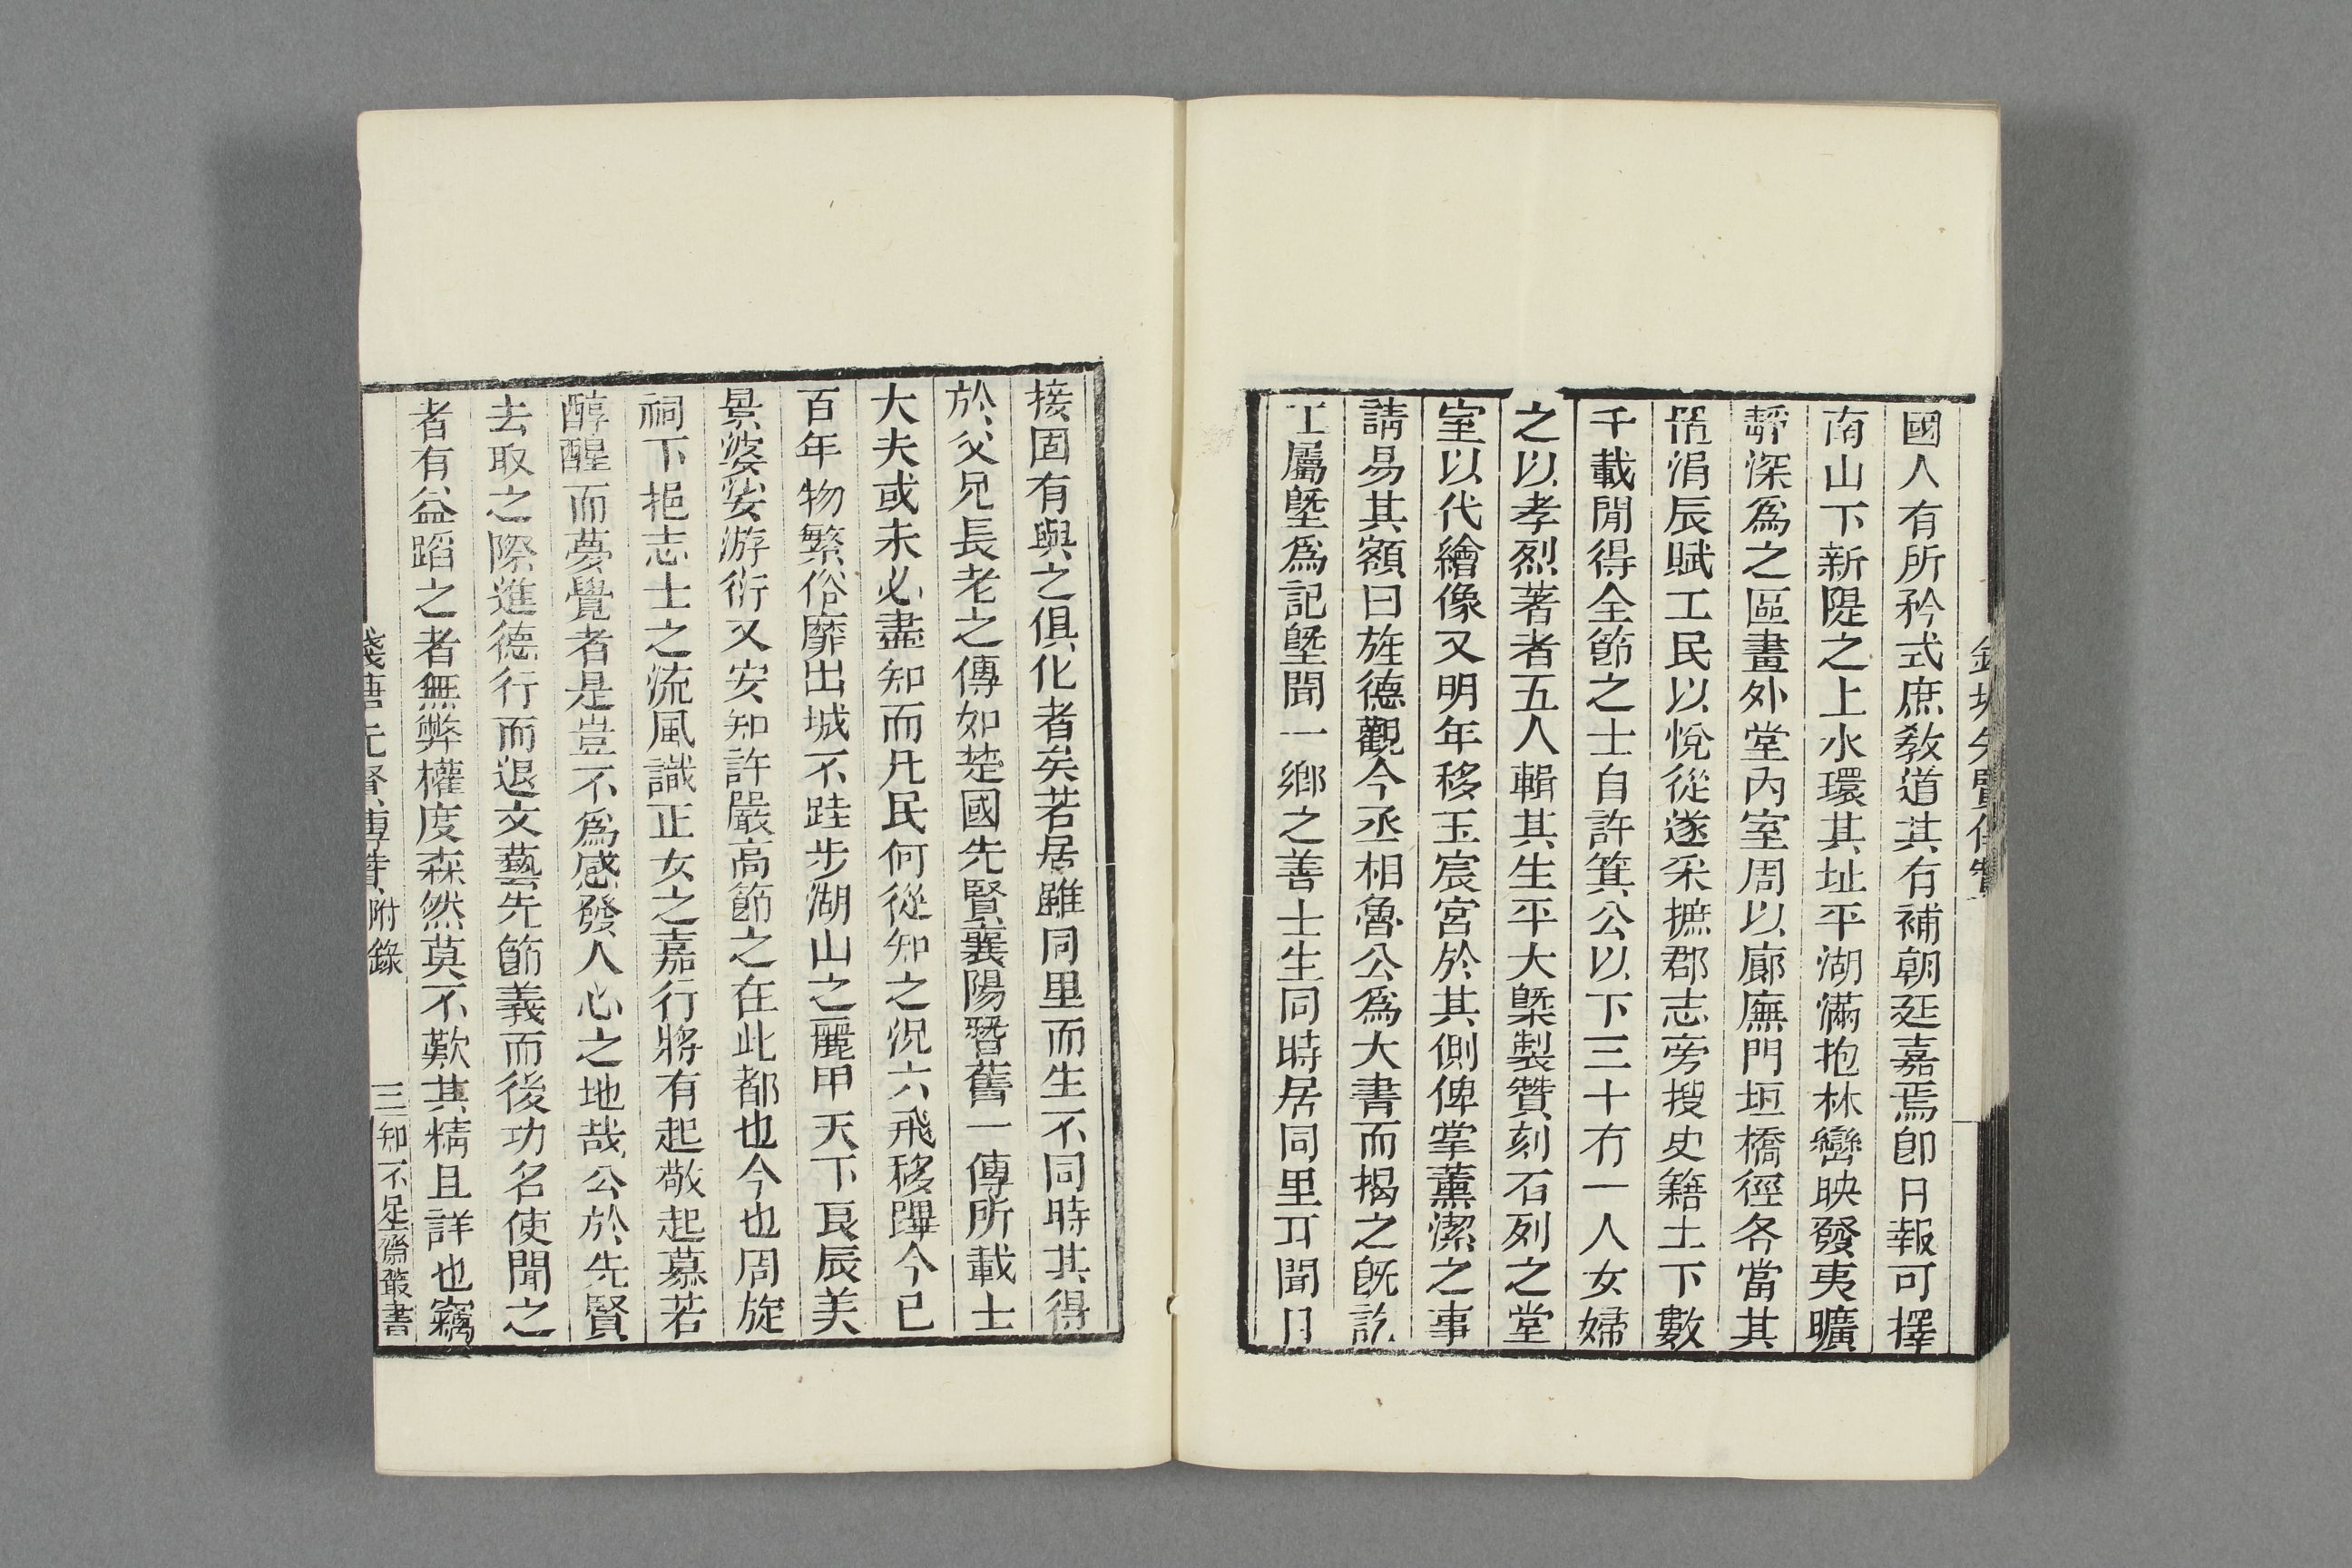 國人有所矜式庶敎道其有補朝廷嘉焉卽日報可擇
南山下新隄之上水環其址平湖滿抱林巒映發夷曠
靜深爲之區畫外堂內室周以廊廡門垣橋徑各當其
涓辰賦工民以悅從遂采摭郡志旁搜史籍土下數
千載閒得全節之士自許箕公以下三十有一人女婦
之以孝烈著者五人輯其生平大槩製贊刻石列之堂
室以代繪像又明年移玉宸宮於其側俾掌薰潔之事
請易其額曰旌德觀今丞相魯公爲大書而揭之旣訖
工屬墍爲記墍聞一鄉之善士生同時居同里耳聞目
接固有與之俱化者矣若居雖同里而生不同時其得
於父兄長老之傳如楚國先賢襄陽耆舊一傳所載士
大夫或未必盡知而凡民何從知之況六飛移蹕今已
百年物繁俗靡出城不跬步湖山之麗甲天下良辰美
景婆娑游衍又安知許嚴高節之在此都也今也周旋
祠下挹志士之流風識正女之嘉行將有起敬起慕若
醇醒而夢覺者是豈不爲感發人心之地哉公於先賢
去取之際進德行而退文藝先節義而後功名使聞之
者有益蹈之者無弊權度森然莫不歎其精且詳也竊
錢塘先賢傳贊附錄 三 知不足齋叢書